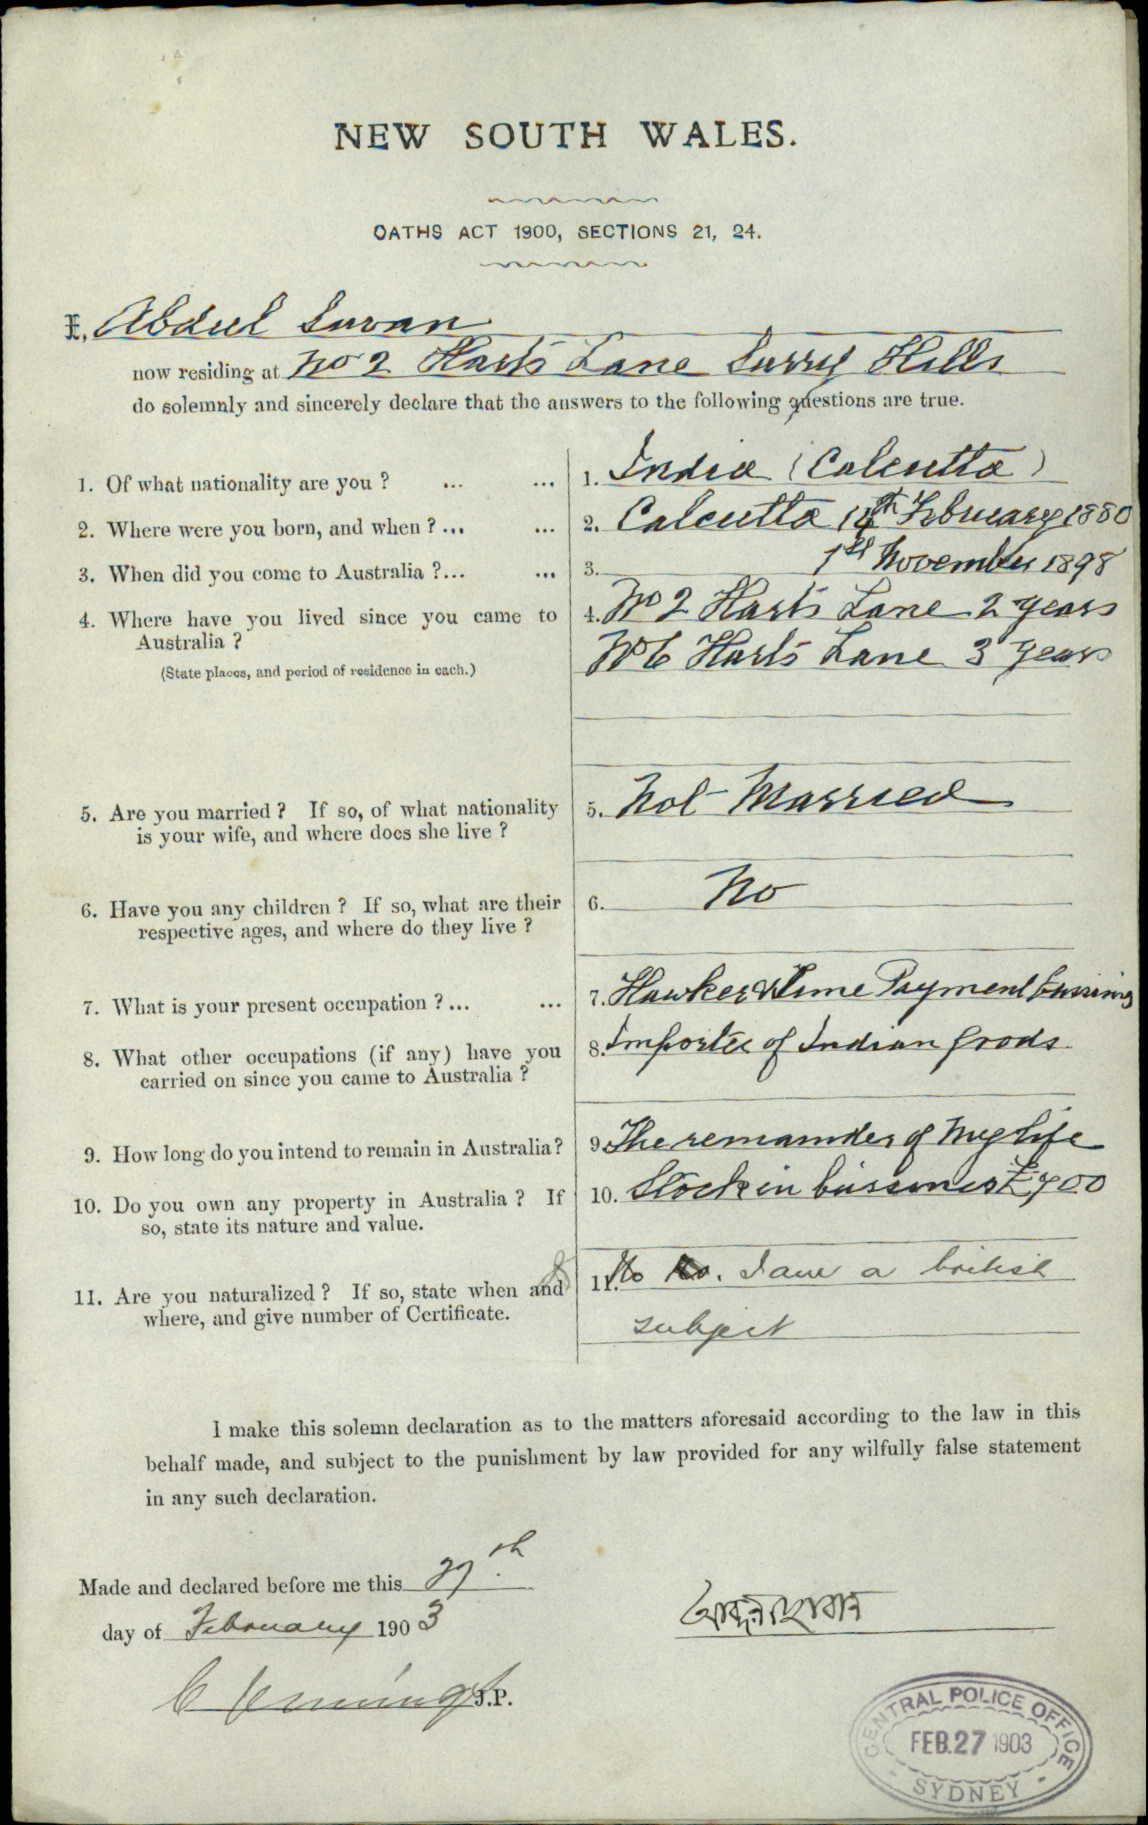 NEW SOUTH WALES.
OATHS ACT 1900, SECTIONS 21, 24.
I, Abdul Suvan
now residing at No 2 Harts Lane Surry Hills
do solemnly and sincerely declare that the answers to the following questions are true.
1. Of what nationality are you ? ... ... 1. India (Calcutta)
2. Where were you born, and when ? ... ... 2. Calcutta 14th February 1880
3. When did you come to Australia ?... ... 3. 1st November 1898
4. Where have you lived since you came to 4. No 2 Harts Lane 2 years
Australia ? No 6 Harts Lane 3 years
(State places, and period of residence in each.)
5. Are you married ? If so, of what nationality 5. Not Married
is your wife, and where does she live ?
6. Have you any children ? If so, what are their 6. No
respective ages, and where do they live ?
7. What is your present occupation ? ... ... 7. Hawker & Time Payment
8. What other occupations (if any) have you 8. Importer of Indian goods
carried on since you came to Australia ?
9. How long do you intend to remain in Australia? 9. The remainder of my life
10. Do you own any property in Australia ? If 10. Stock in £700
so, state its nature and value.
11. Are you naturalized ? If so, state when and 11. No No. I am a british
where, and give number of Certificate. subject
I make this solemn declaration as to the matters aforesaid according to the law in this
behalf made, and subject to the punishment by law provided for any wilfully false statement
in any such declaration.
Made and declared before me this 27th
day of February 1903
J.P.
CENTRAL POLICE OFFICE
FEB. 27 1903
SYDNEY